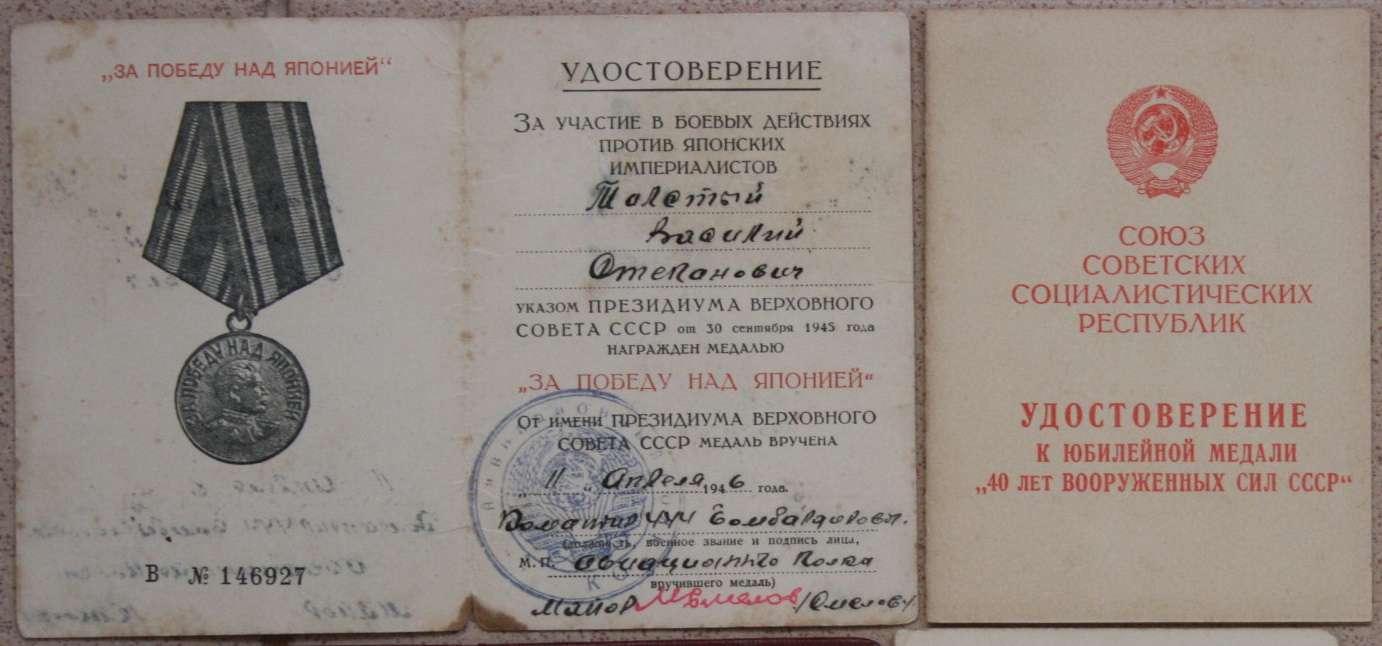 „ЗА ПОБЕДУ НАД ЯПОНИЕЙ“
ЗА ПОБЕДУ НАД ЯПОНИЕЙ
В № 146927
УДОСТОВЕРЕНИЕ
ЗА УЧАСТИЕ В БОЕВЫХ ДЕЙСТВИЯХ
ПРОТИВ ЯПОНСКИХ
ИМПЕРИАЛИСТОВ
Толстый
Василий
Степанович
УКАЗОМ ПРЕЗИДИУМА ВЕРХОВНОГО
СОВЕТА СССР от 30 сентября 1945 года
НАГРАЖДЕН МЕДАЛЬЮ
„ЗА ПОБЕДУ НАД ЯПОНИЕЙ“
ОТ ИМЕНИ ПРЕЗИДИУМА ВЕРХОВНОГО
СОВЕТА СССР МЕДАЛЬ ВРУЧЕНА
„ 11 “ Апреля 1946 года.
Командир 444 Бомбардировоч.
(должность, военное звание и подпись лица,
М. П. авиационного Полка
вручившего медаль)
Майор
СОЮЗ
СОВЕТСКИХ
СОЦИАЛИСТИЧЕСКИХ
РЕСПУБЛИК
УДОСТОВЕРЕНИЕ
К ЮБИЛЕЙНОЙ МЕДАЛИ
„40 ЛЕТ ВООРУЖЕННЫХ СИЛ СССР“